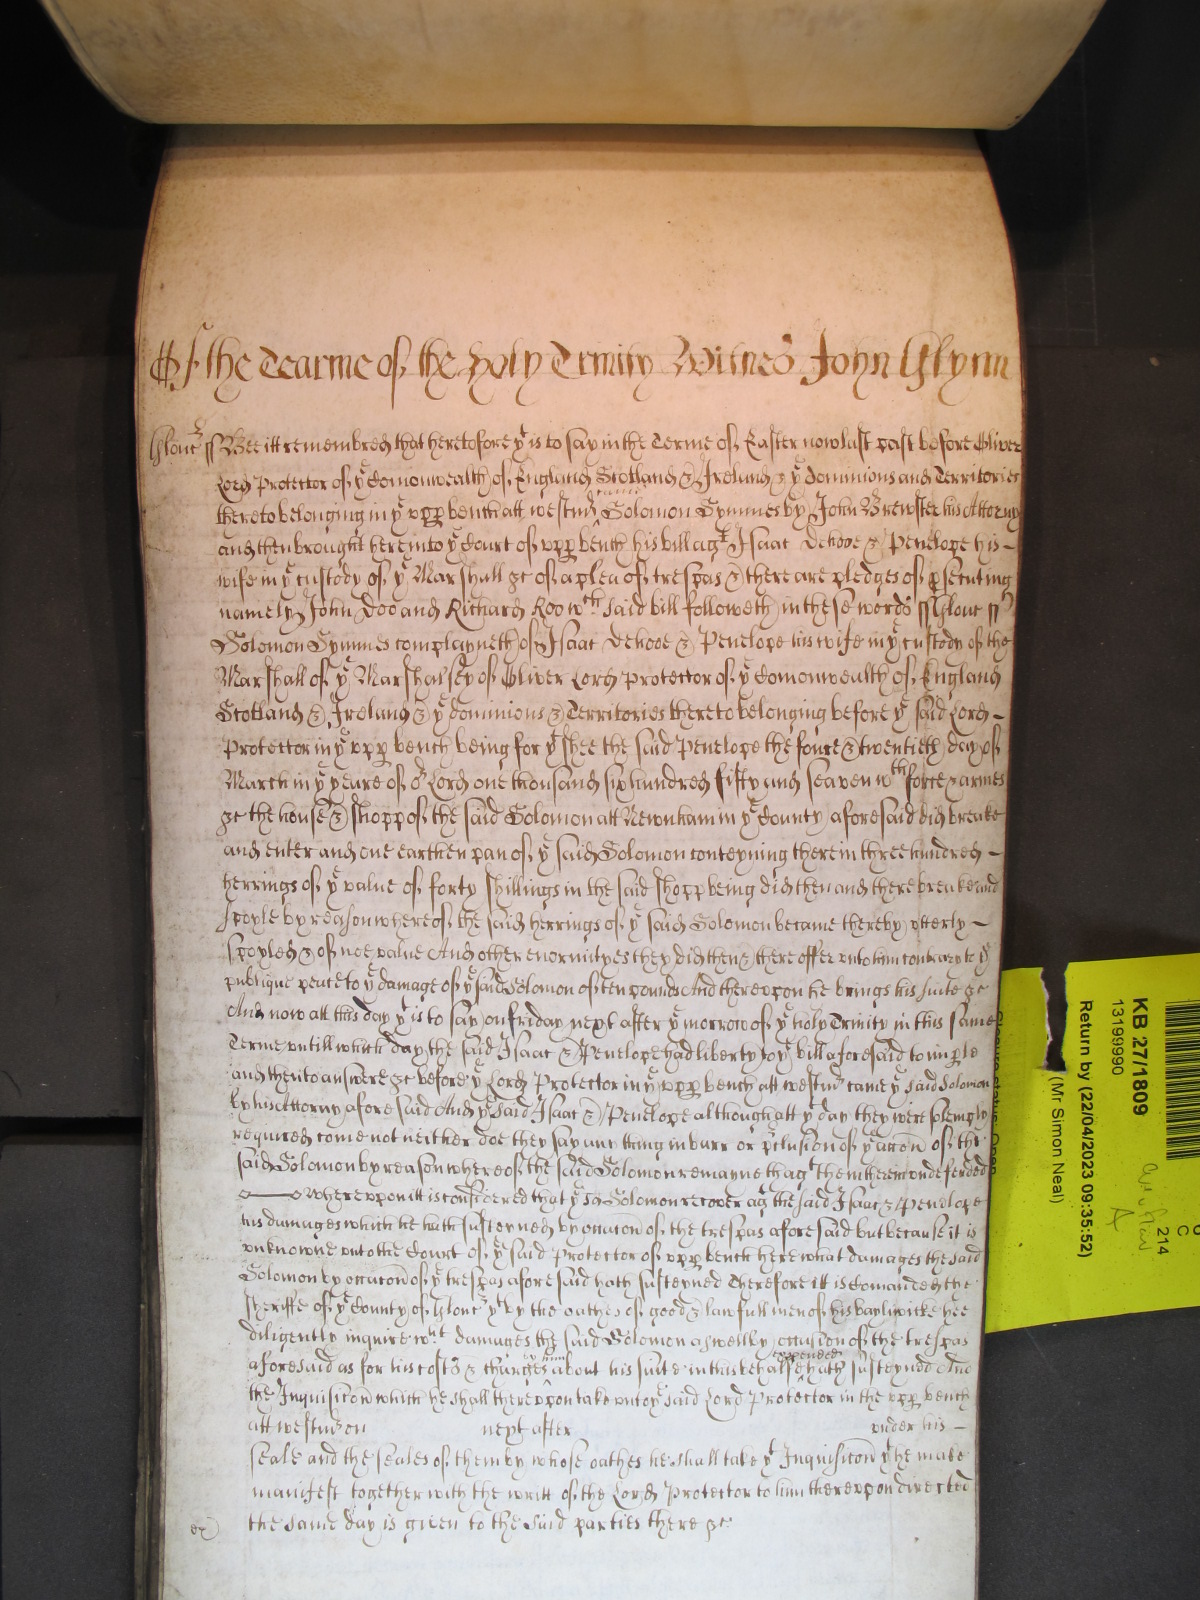 Of the Tearme of the holy Trinity Witnes John Glynn
Glouc ss Bee itt remembred that heretofore yt is to say in the Terme of Easter now last past before Oliver
Lord Protector of ye Comonwealth of England Scotland & Ireland & ye dominions and Territories
thereto belonging in ye upp bench att Westmr came Solomon Symmes by John Brewster his Attorny
and then brought here into ye Court of upp bench his bill agt Isaac & Penelope his
wife in ye custody of ye Marshall &c of a plea of trespas & there are pledges of psecuting
namely John Doo and Richard Roo wch said bill followeth in these words ss Glouc ss
Solomon Symmes complayneth of Isaac & Penelope his wife in ye custody of the
Marshall of ye Marshalsey of Oliver Lord Protector of ye Comonwealth of England
Scotland & Ireland & ye dominions & Territories thereto belonging before ye said Lord
Protector in ye upp bench being for yt shee the said Penelope the foure & twentieth day of
March in ye yeare of or Lord one thousand six hundred fifty and seaven wth force & armes
&c the house & shopp of the said Solomon att Newnham in ye County aforesaid did breake
and enter and one earthen pan of ye said Solomon conteyning therein three hundred
herrings of ye value of forty shillings in the said shopp being did then and there breake and
spoyle by reason whereof the said herrings of ye said Solomon became thereby utterly
spoyled & of noe value And other enormityes they did then & there offer unto him contrary to ye
publique peace to ye damage of ye said Solomon of ten pounds And thereupon he brings his suite &c
And now att this day yt is to say on friday next after ye morrow of ye holy Trinity in this same
Terme untill which day the said Isaac & Penelope had liberty to ye bill aforesaid to imparle
and then to answere &c before ye Lord Protector in ye upp bench att Westmr came ye said Solomon
by his Attorny aforesaid And ye said Isaac & Penelope although att yt day they were solemply
required come not neither doe they say any thing in barr or pclusion of ye accon of the
said Solomon by reason whereof the said Solomon remayneth agt them therein undefended
Whereupon itt is considered that ye sd Solomon recover agt the said Isaac & Penelope
his damages which he hath susteyned by occacon of the trespas aforesaid but because it is
unknowne unto the Court of ye said Protector of upp bench here what damages the said
Solomon by occacon of ye trespas aforesaid hath susteyned Therefore itt is comanded the
Sheriffe of ye County of Glouc yt by the oathes of good & lawfull men of his baylywicke hee
diligently inquire wht damages the said Solomon aswell by occasion of the trespas
aforesaid as for his costs & charges by him about his suite in this behalfe expended hath susteyned And
the Inquisicon which he shall thereupon take unto ye said Lord Protector in the upp bench
att Westmr on next after under his
seale and the seales of them by whose oathes he shall take yt Inquisicon yt he make
manifest together with the writt of the Lord Protector to him thereupon directed
the same day is given to the said parties there &c
ex
KB 27/1809
13199990
Return by (22/04/2023 09:35:52)
(Mr Simon Neal)
214
C
A